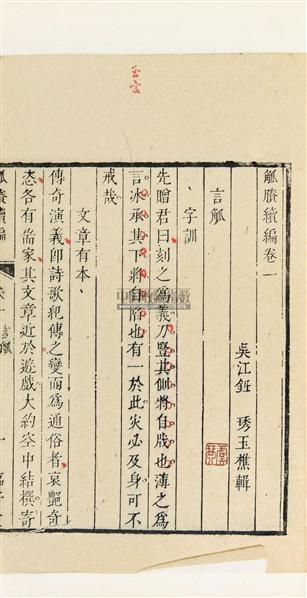 玉言
觚賸續編卷一
吳江鈕　琇玉樵輯
言觚
字訓
先贈君曰刻之為義刀豎其側將自戕也薄之為
言冰承其下將自陷也有一於此災必及身可不
戒哉
文章有本
傳奇演義即詩歌紀傳之變而為通俗者哀艷奇
恣各有耑家其文章近於遊戲大約空中結撰寄
觚賸續編
卷一　言觚
一